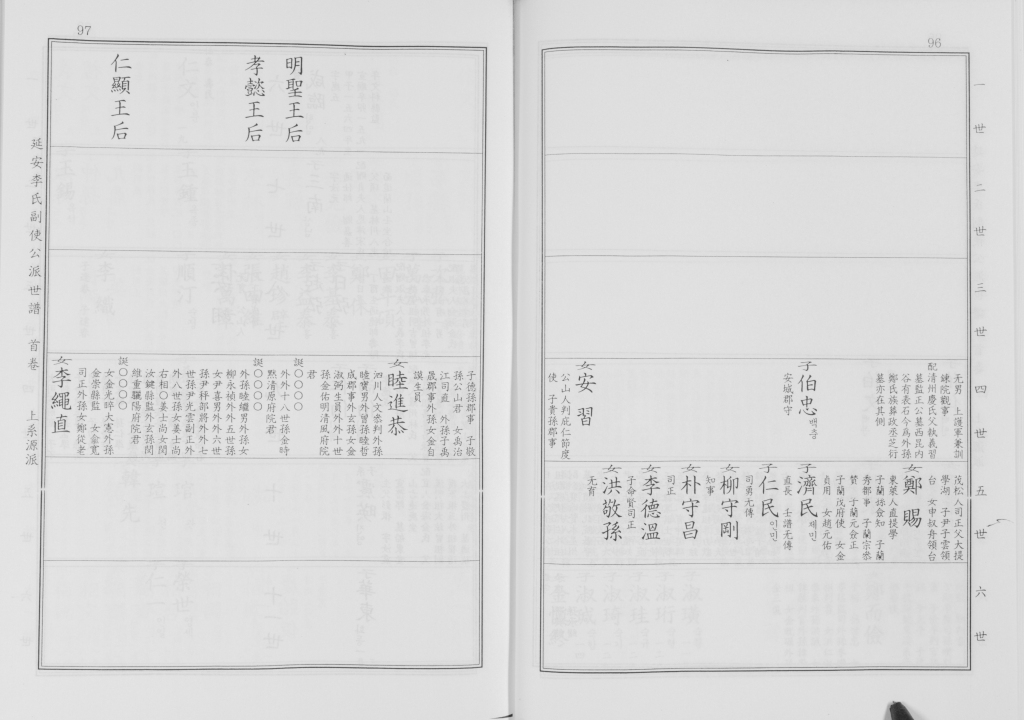 96
一世
二世
三世
四世
五世
六世
无男 上護軍兼訓
鍊院觀事
配淸州慶氏父執義習
墓監正公墓西昆内
谷有表石今爲外孫
鄭氏族葬政丞芝衍
墓亦在其側
子伯忠백충
安城郡守
女安習
公山人判底仁節度
使 子貴孫郡事
茂松人司正父大提
學湖 子尹子雲領
台 女申叔舟領台
女鄭賜
東萊人直提學
子蘭孫僉知 子蘭
秀郡事 子蘭宗丞
贊 子蘭元僉正
子蘭茂府使 女金
貞用 女趙元佑
子濟民제민
直長 士譜无傳
子仁民인민
司勇无傳
女柳守剛
知事
女朴守昌
司正
女李德溫
子命賢司正
女洪敬孫
无育
97
延安李氏副使公派世譜 首卷 上系源派
明聖王后
孝懿王后
仁顯王后
子德孫郡事 子敬
孫公山君 女禹治
江司直 外孫子禹
晟郡事外孫女金自
謨生員
女睦進恭
泗川人文參判外孫
睦寶男外曾孫睦哲
成郡事外玄孫女金
淑弼生員外外十世
孫金佑明淸風府院
君
誕〇〇〇〇
外外十八世孫金時
默淸原府院君
誕〇〇〇〇
外孫睦繼男外孫女
柳永禎外外五世孫
女尹喜男外外六世
孫尹秤部將外外七
世孫尹光雲副正外
外八世孫女姜士尚
右相〇姜士尚女閔
汝健縣監外玄孫閔
維重驪陽府院君
誕〇〇〇〇
女金光晬大憲外孫
金崇縣監 女俞寬
司正外孫女鄭從老
女李繩直